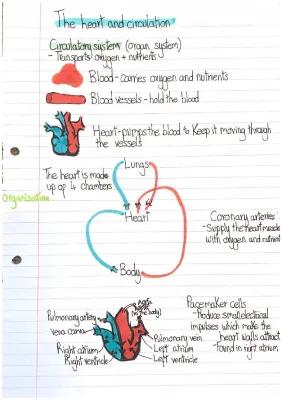 The heart and circulation
Circulatory system (organ system)
- Transports oxygen + nutrients
Blood - carries oxygen and nutrients
Blood vessels - hold the blood
Heart - pumps the blood to keep it moving through
the vessels
The heart is made
up of 4 chambers
Lungs
Organisation
Heart
Coronary arteries
- Supply the heart muscle
with oxygen and nutrient
Body
Aorta
(to the body)
Pulmonary artery
vena cava
Right atrium
Right ventricle
Pulmonary vein
Left atrium
Left ventricle
Pacemaker cells
- Produce small electrical
impulses which make the
heart walls contract
- found in right atrium